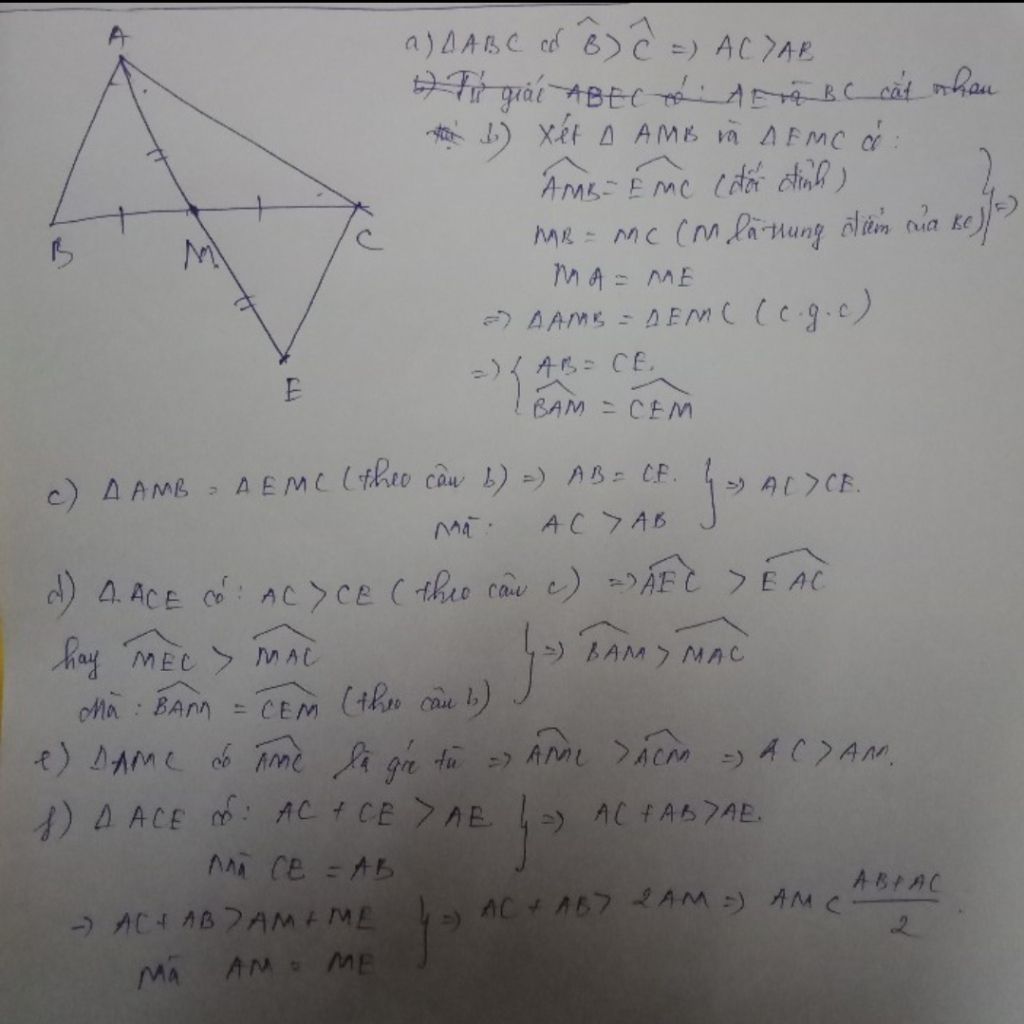 A
B
M
C
E
a) ΔABC có B̂ > Ĉ => AC > AB
b) Tứ giác ABEC có: AE và BC cắt nhau
b) Xét Δ AMB và ΔEMC có:
\widehat{AMB} = \widehat{EMC} (đối đỉnh)
MB = MC (M là trung điểm của BC) } =>
MA = ME
=> ΔAMB = ΔEMC (c.g.c)
=> { AB = CE.
\widehat{BAM} = \widehat{CEM}
c) ΔAMB = ΔEMC (theo câu b) => AB = CE. } => AC > CE.
Mà: AC > AB
d) Δ.ACE có: AC > CE (theo câu c) => \widehat{AEC} > \widehat{EAC}
hay \widehat{MEC} > \widehat{MAC} } => \widehat{BAM} > \widehat{MAC}
Mà: \widehat{BAM} = \widehat{CEM} (theo câu b)
e) ΔAMC có \widehat{AMC} là góc tù => \widehat{AMC} > \widehat{ACM} => AC > AM.
f) Δ ACE có: AC + CE > AE } => AC + AB > AE.
Mà CE = AB
-> AC + AB > AM + ME } => AC + AB > 2AM => AM < \frac{AB+AC}{2}.
Mà AM = ME